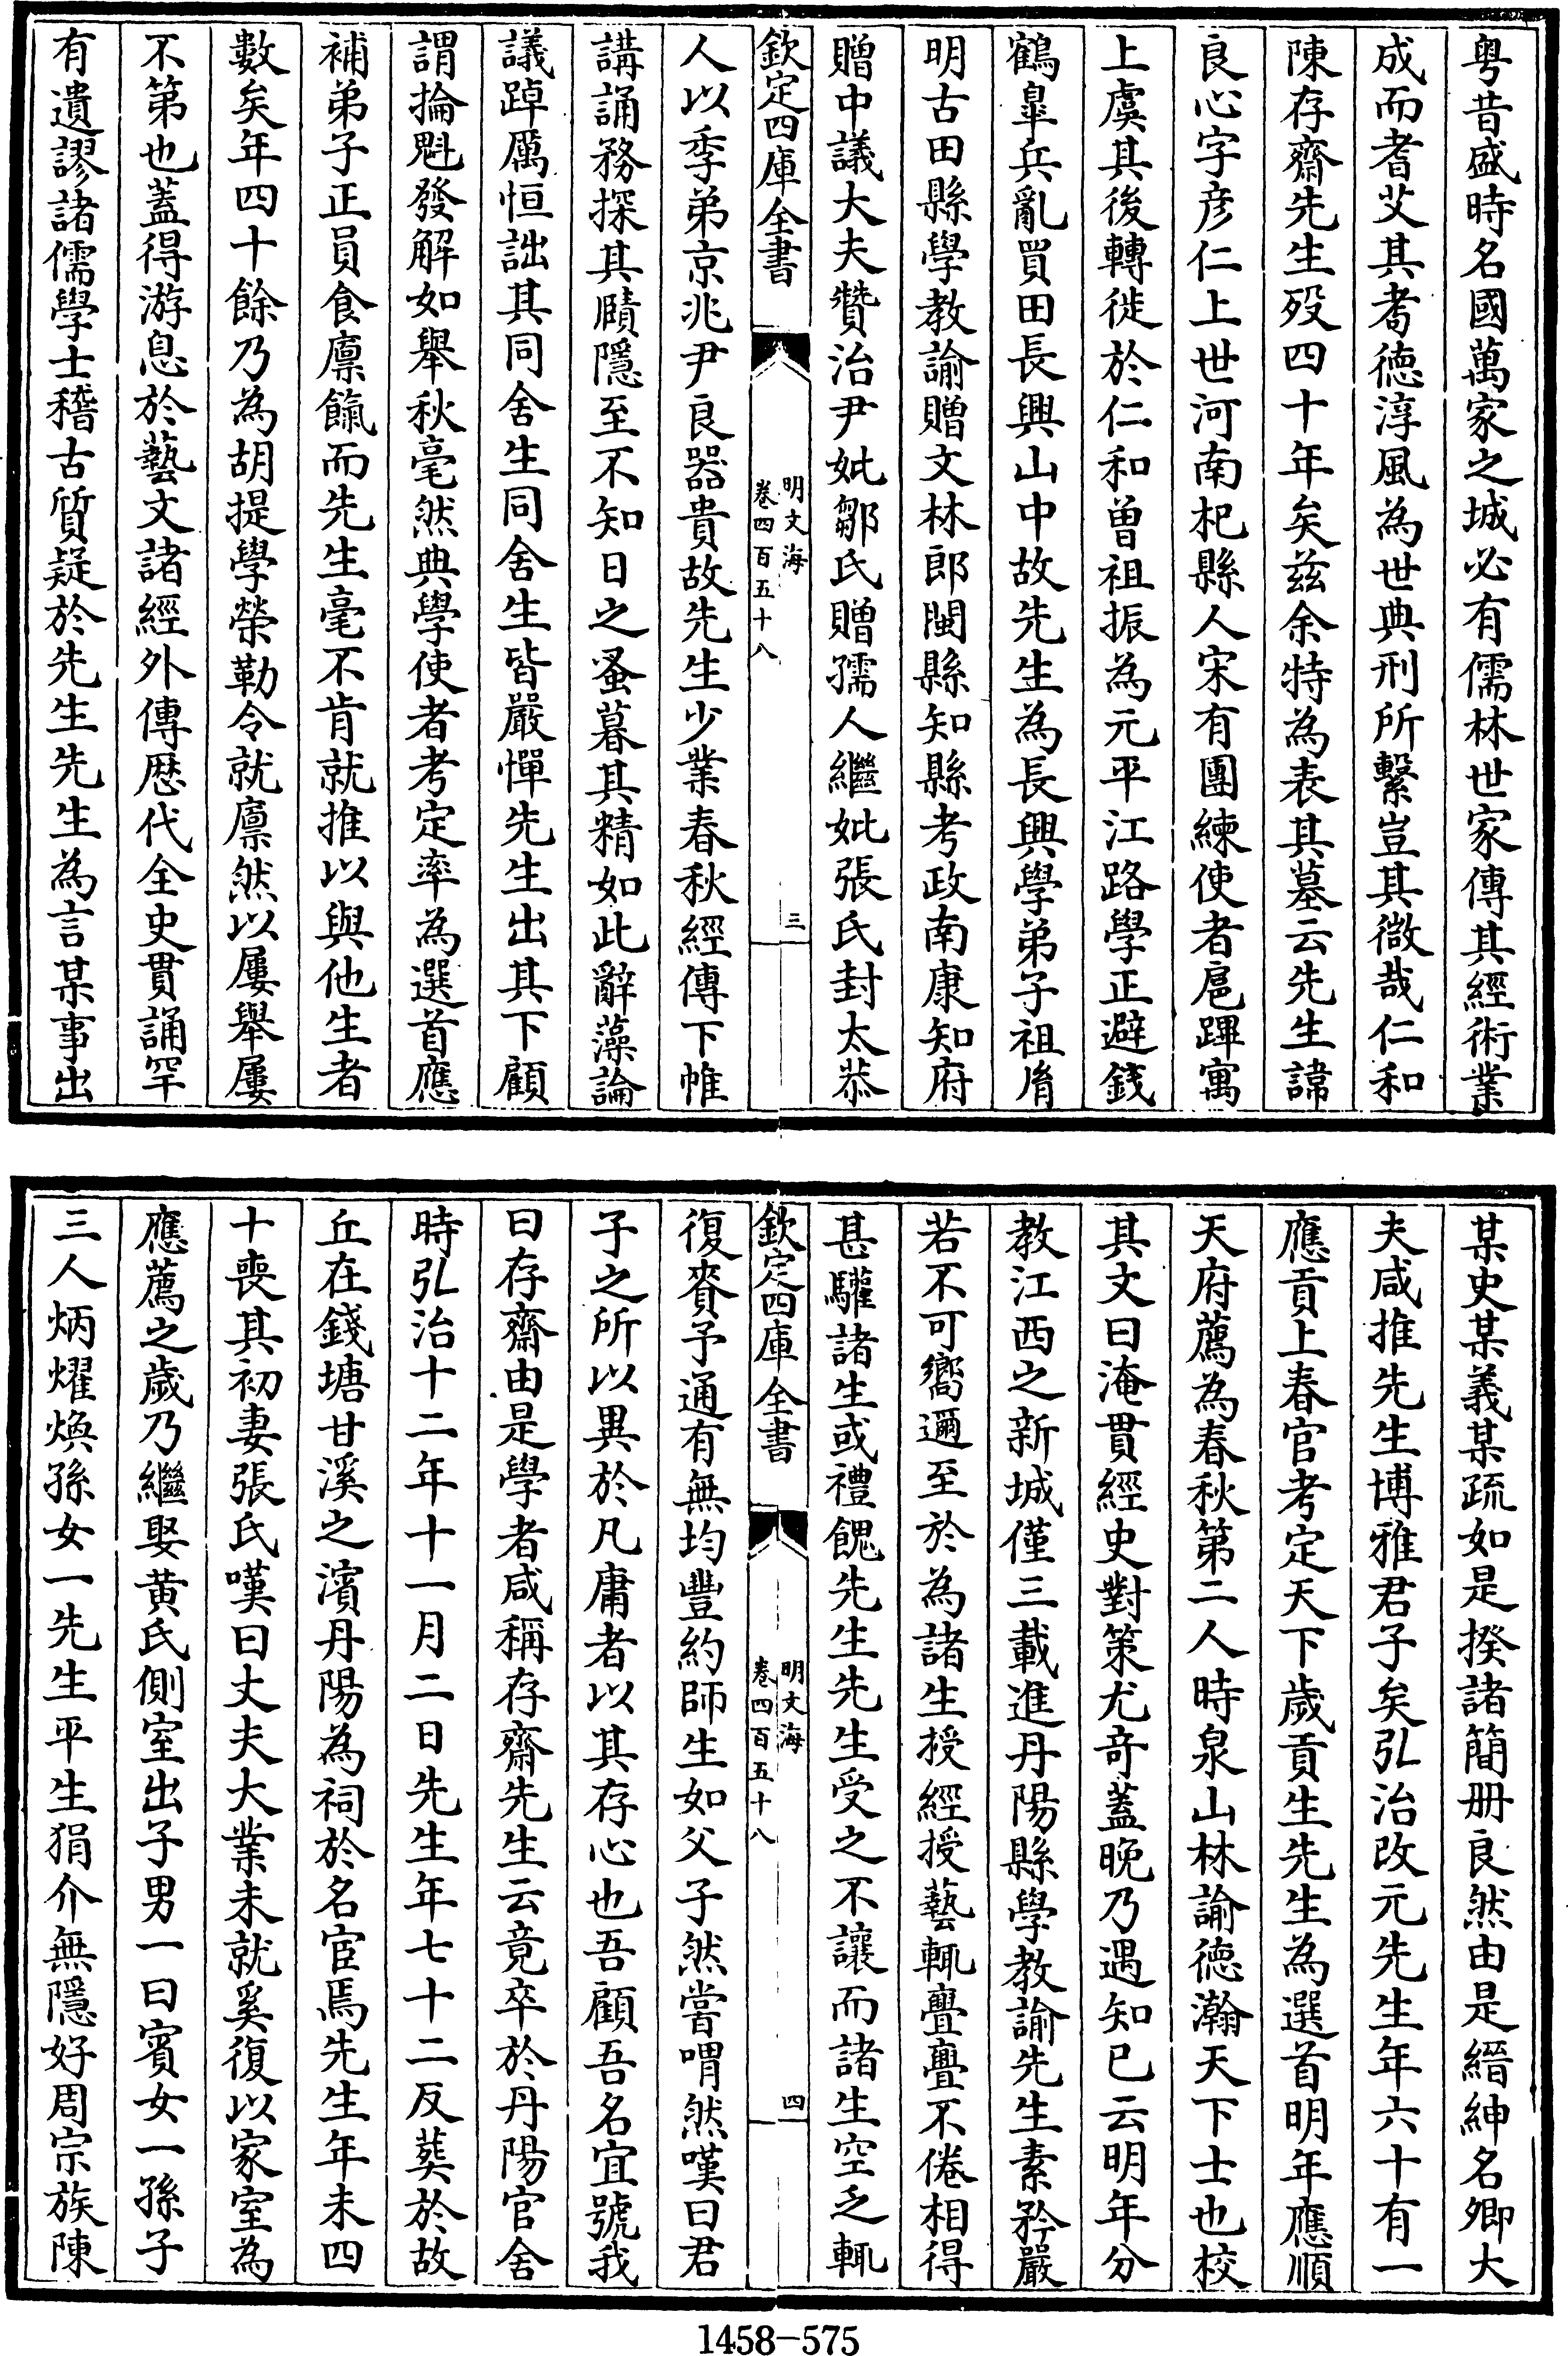 粤昔盛時名國萬家之城必有儒林世家傳其經術業
成而耆艾其耉德淳風為世典刑所繫豈其微哉仁和
陳存齋先生歿四十年矣兹余特為表其墓云先生諱
良心字彦仁上世河南杞縣人宋有團練使者扈蹕寓
上虞其後轉徙於仁和曾祖振為元平江路學正避錢
鶴臯兵亂買田長興山中故先生為長興學弟子祖㫺
明古田縣學教諭贈文林郎閩縣知縣考政南康知府
贈中議大夫贊治尹妣鄒氏贈孺人繼妣張氏封太恭
欽定四庫全書
明文海
卷四百五十八
三
人以季弟京兆尹良器貴故先生少業春秋經傳下帷
講誦務探其賾隱至不知日之蚤暮其精如此辭藻論
議踔厲恒詘其同舍生同舍生皆嚴憚先生出其下顧
謂掄魁發解如舉秋毫然典學使者考定率為選首應
補弟子正員食廪餼而先生毫不肯就推以與他生者
數矣年四十餘乃為胡提學榮勒令就廪然以屢舉屢
不第也蓋得游息於藝文諸經外傳歴代全史貫誦罕
有遺謬諸儒學士稽古質疑於先生先生為言某事出
某史某義某疏如是揆諸簡册良然由是縉紳名卿大
夫咸推先生博雅君子矣弘治改元先生年六十有一
應貢上春官考定天下歲貢生先生為選首明年應順
天府薦為春秋第二人時泉山林諭德瀚天下士也校
其文曰淹貫經史對策尤竒蓋晚乃遇知已云明年分
教江西之新城僅三載進丹陽縣學教諭先生素矜嚴
若不可嚮邇至於為諸生授經授藝輒亹亹不倦相得
甚驩諸生或禮餽先生先生受之不讓而諸生空乏輒
欽定四庫全書
明文海
卷四百五十八
四
復賚予通有無均豐約師生如父子然嘗喟然嘆曰君
子之所以異於凡庸者以其存心也吾顧吾名宜號我
曰存齋由是學者咸稱存齋先生云竟卒於丹陽官舍
時弘治十二年十一月二日先生年七十二反葬於故
丘在錢塘甘溪之濱丹陽為祠於名宦焉先生年未四
十喪其初妻張氏嘆曰丈夫大業未就奚復以家室為
應薦之歲乃繼娶黄氏側室出子男一曰賓女一孫子
三人炳燿煥孫女一先生平生狷介無隱好周宗族陳
1458-575